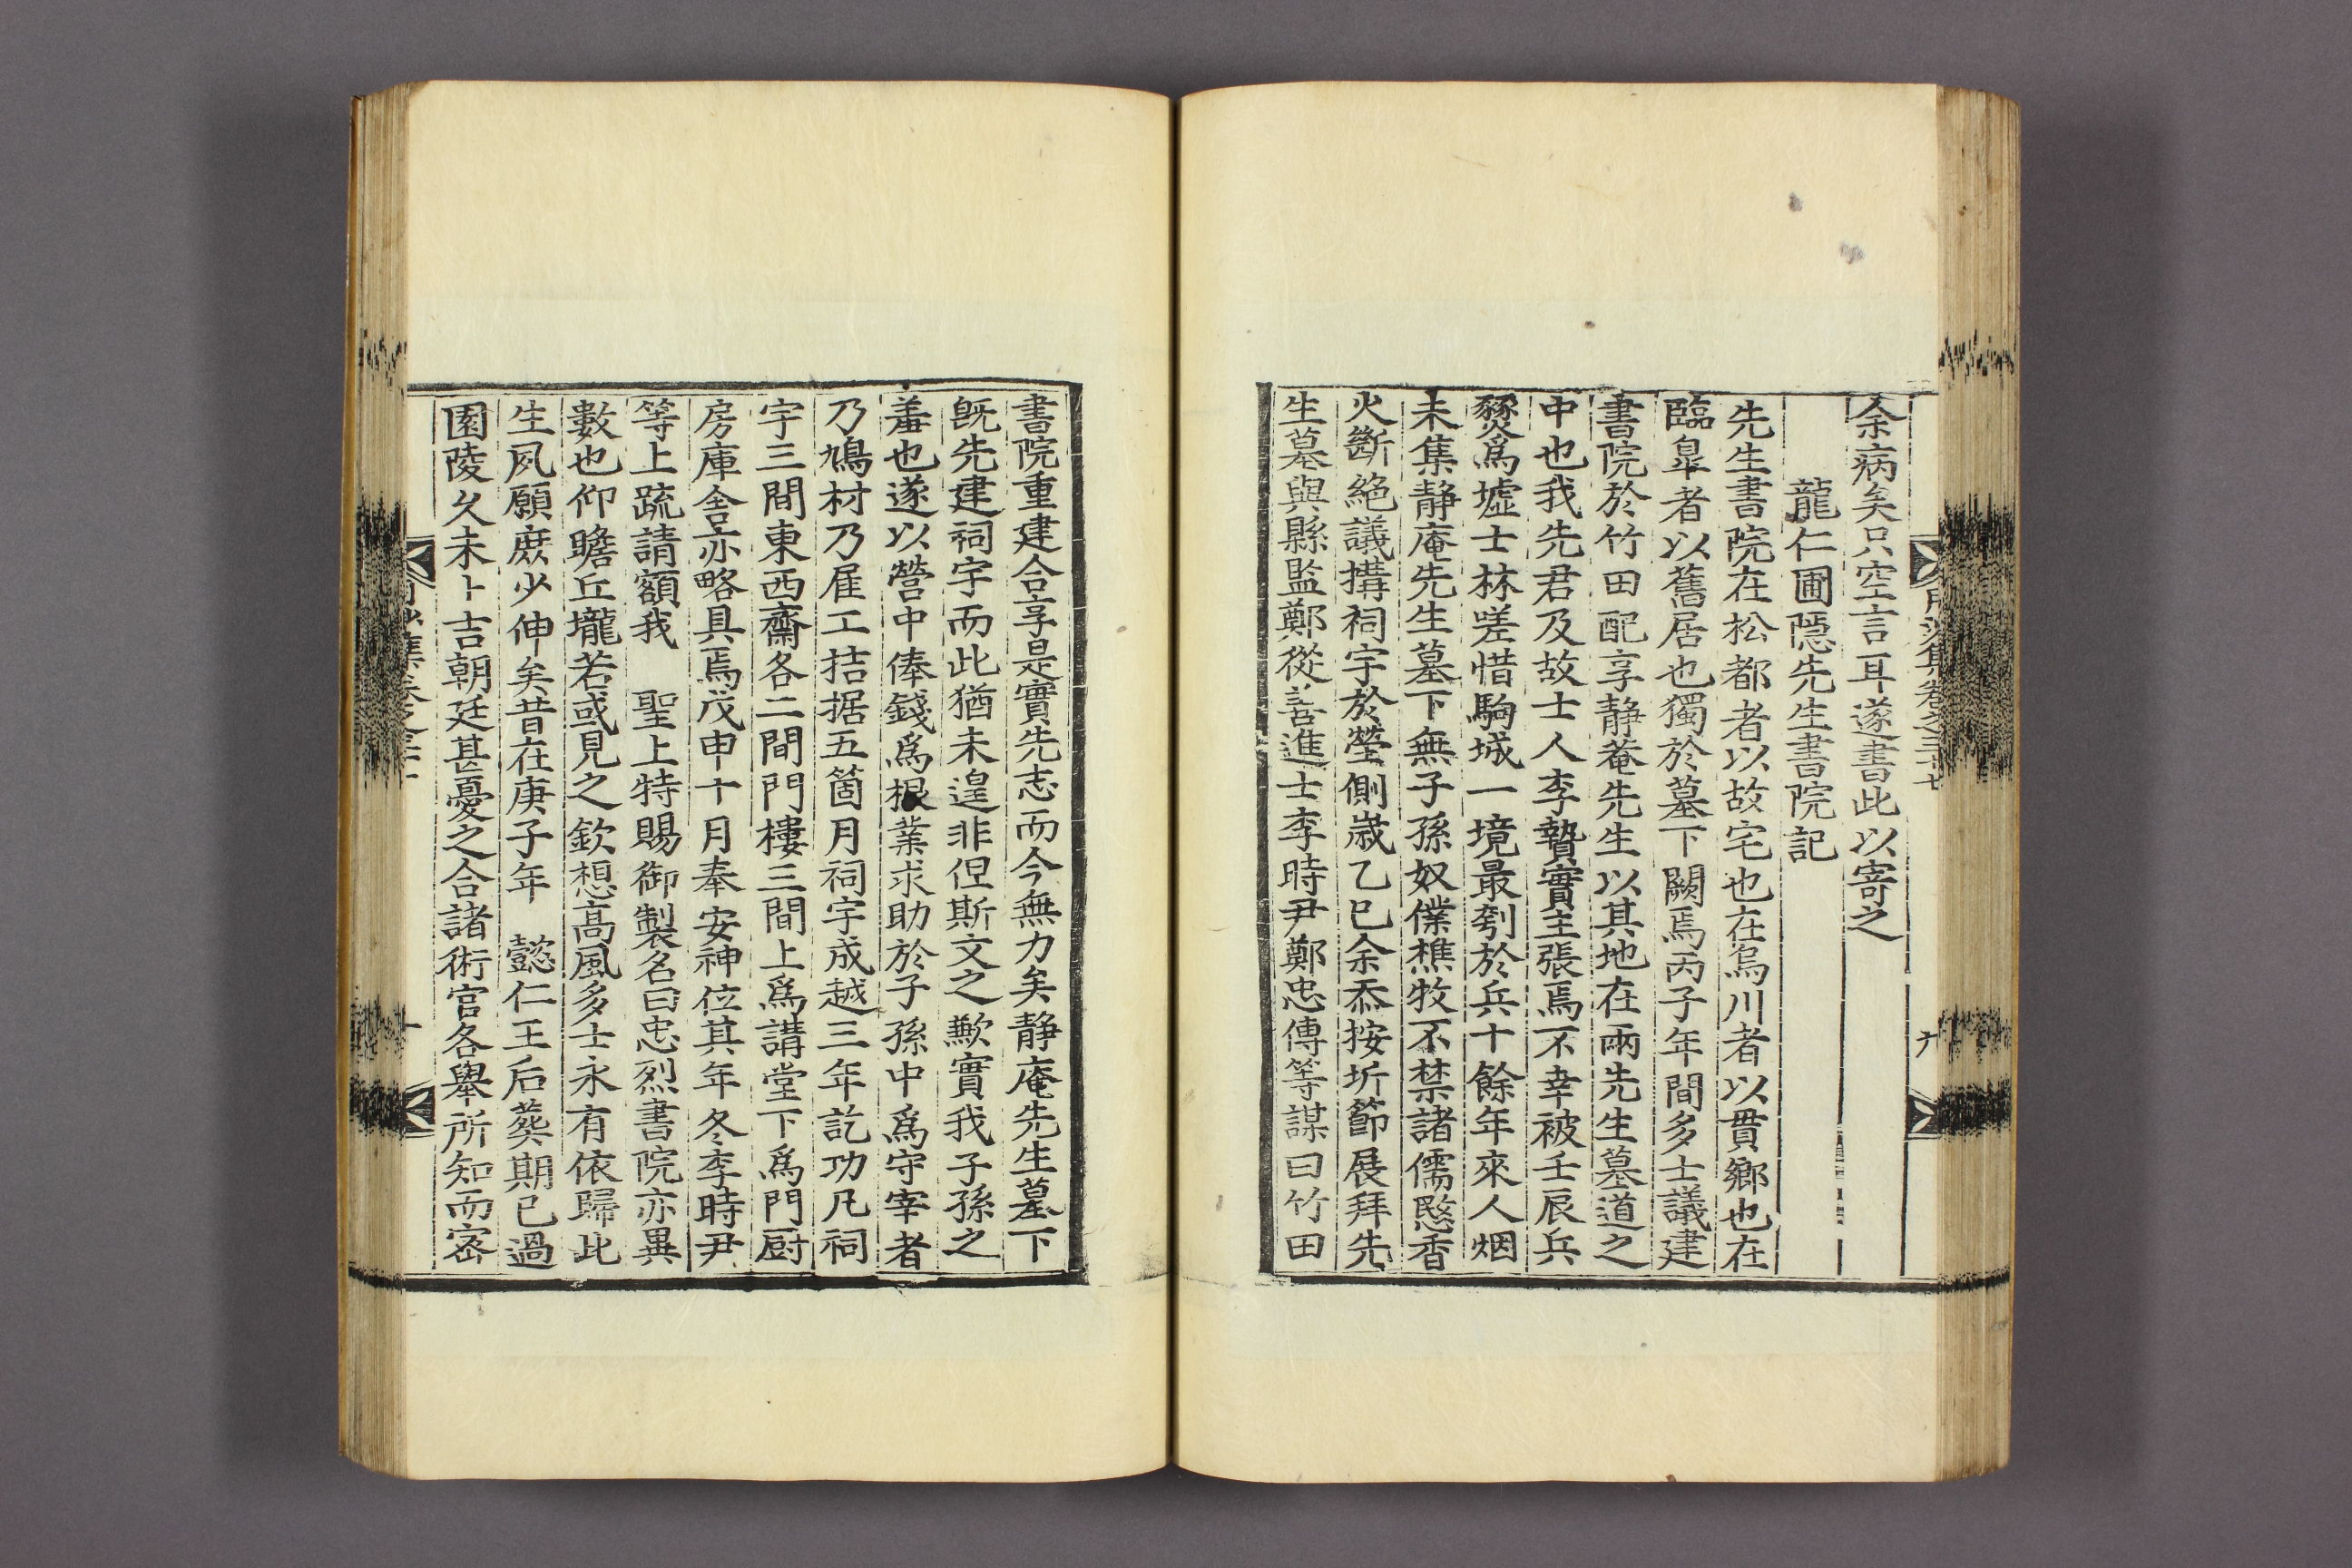 余病矣只空言耳遂書此以寄之
龍仁圃隱先生書院記
先生書院在松都者以故宅也在烏川者以貫鄕也在
臨皐者以舊居也獨於墓下闕焉丙子年間多士議建
書院於竹田配享静菴先生以其地在兩先生墓道之
中也我先君及故士人李贄實主張焉不幸被壬辰兵
燹爲墟士林嗟惜駒城一境最刳於兵十餘年來人烟
未集静庵先生墓下無子孫奴僕樵牧不禁諸儒愍香
火斷絶議搆祠宇於瑩側歲乙巳余忝按圻節展拜先
生墓與縣監鄭從善進士李時尹鄭忠傳等謀曰竹田
書院重建合享是實先志而今無力矣静庵先生墓下
旣先建祠宇而此猶未遑非但斯文之歉實我子孫之
羞也遂以營中俸錢爲根業求助於子孫中爲守宰者
乃鳩材乃雇工拮据五箇月祠宇成越三年訖功凡祠
宇三間東西齋各二間門樓三間上爲講堂下爲門厨
房庫舍亦略具焉戊申十月奉安神位其年冬李時尹
等上疏請額我 聖上特賜御製名曰忠烈書院亦異
數也仰瞻丘壠若或見之欽想高風多士永有依歸此
生夙願庶少伸矣昔在庚子年 懿仁王后葬期已過
園陵久未卜吉朝廷甚憂之合諸術官各擧所知而密